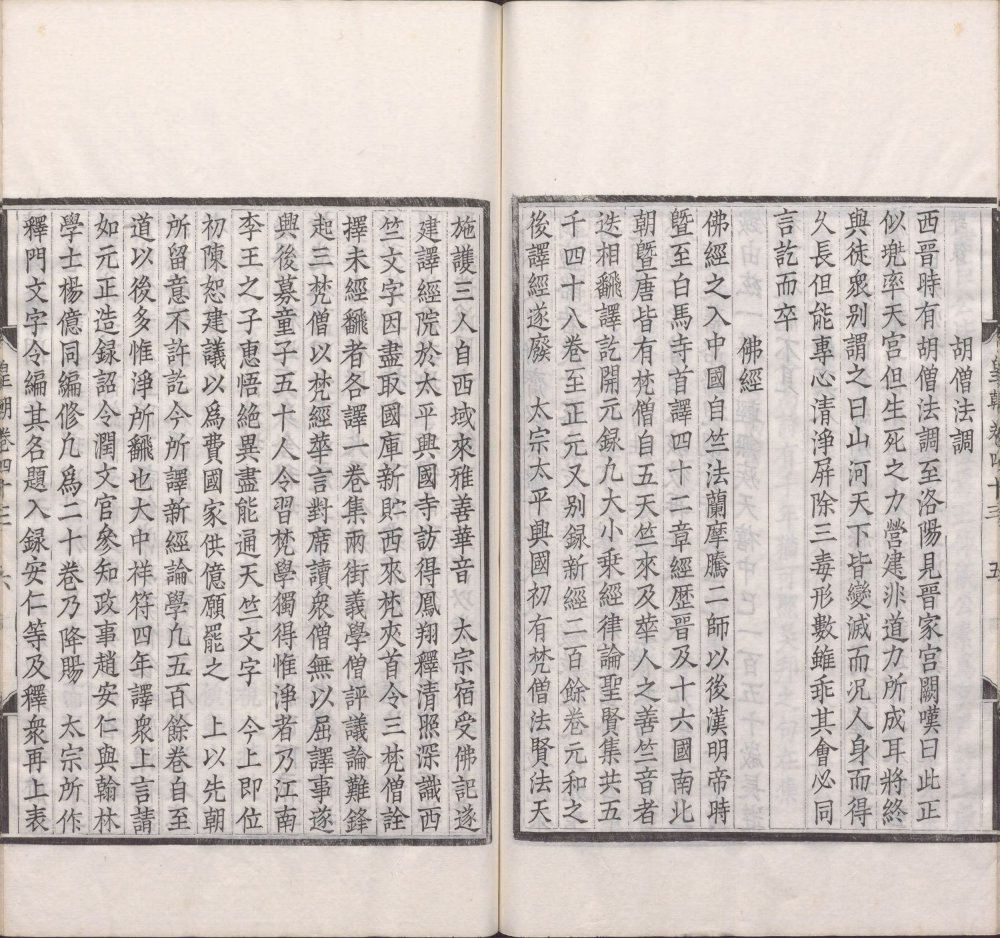 胡僧法調
西晉時有胡僧法調至洛陽見晉家宮闕嘆曰此正
似兠率天宮但生死之力營建非道力所成耳將終
與徒衆別謂之曰山河天下皆變滅而况人身而得
乆長但能專心清淨屏除三毒形數雖乖其會必同
言訖而卒
佛經
佛經之入中國自竺法蘭摩騰二師以後漢明帝時
曁至白馬寺首譯四十二章經歷晉及十六國南北
朝曁唐皆有梵僧自五天竺來及華人之善竺音者
迭相飜譯訖開元録凡大小乗經律論聖賢集共五
千四十八卷至正元又别録新經二百餘卷元和之
後譯經遂廢 太宗太平興國初有梵僧法賢法天
施護三人自西域來雅善華音 太宗宿受佛記遂
建譯經院於太平興國寺訪得鳳翔釋清照深識西
竺文字因盡取國庫新貯西來梵夾首令三梵僧詮
擇未經飜者各譯一卷集兩街義學僧評議論難鋒
起三梵僧以梵經華言對席讀衆僧無以屈譯事遂
興後募童子五十人令習梵學獨得惟淨者乃江南
李王之子惠悟絶異盡能通天竺文字 今上即位
初陳恕建議以爲費國家供億願罷之 上以先朝
所留意不許訖今所譯新經論學凡五百餘卷自至
道以後多惟淨所飜也大中祥符四年譯衆上言請
如元正造録詔令潤文官參知政事趙安仁與翰林
學士楊億同編修凡爲二十卷乃降賜 太宗所作
釋門文字令編其名題入録安仁等及釋衆再上表
皇朝卷四十三 六